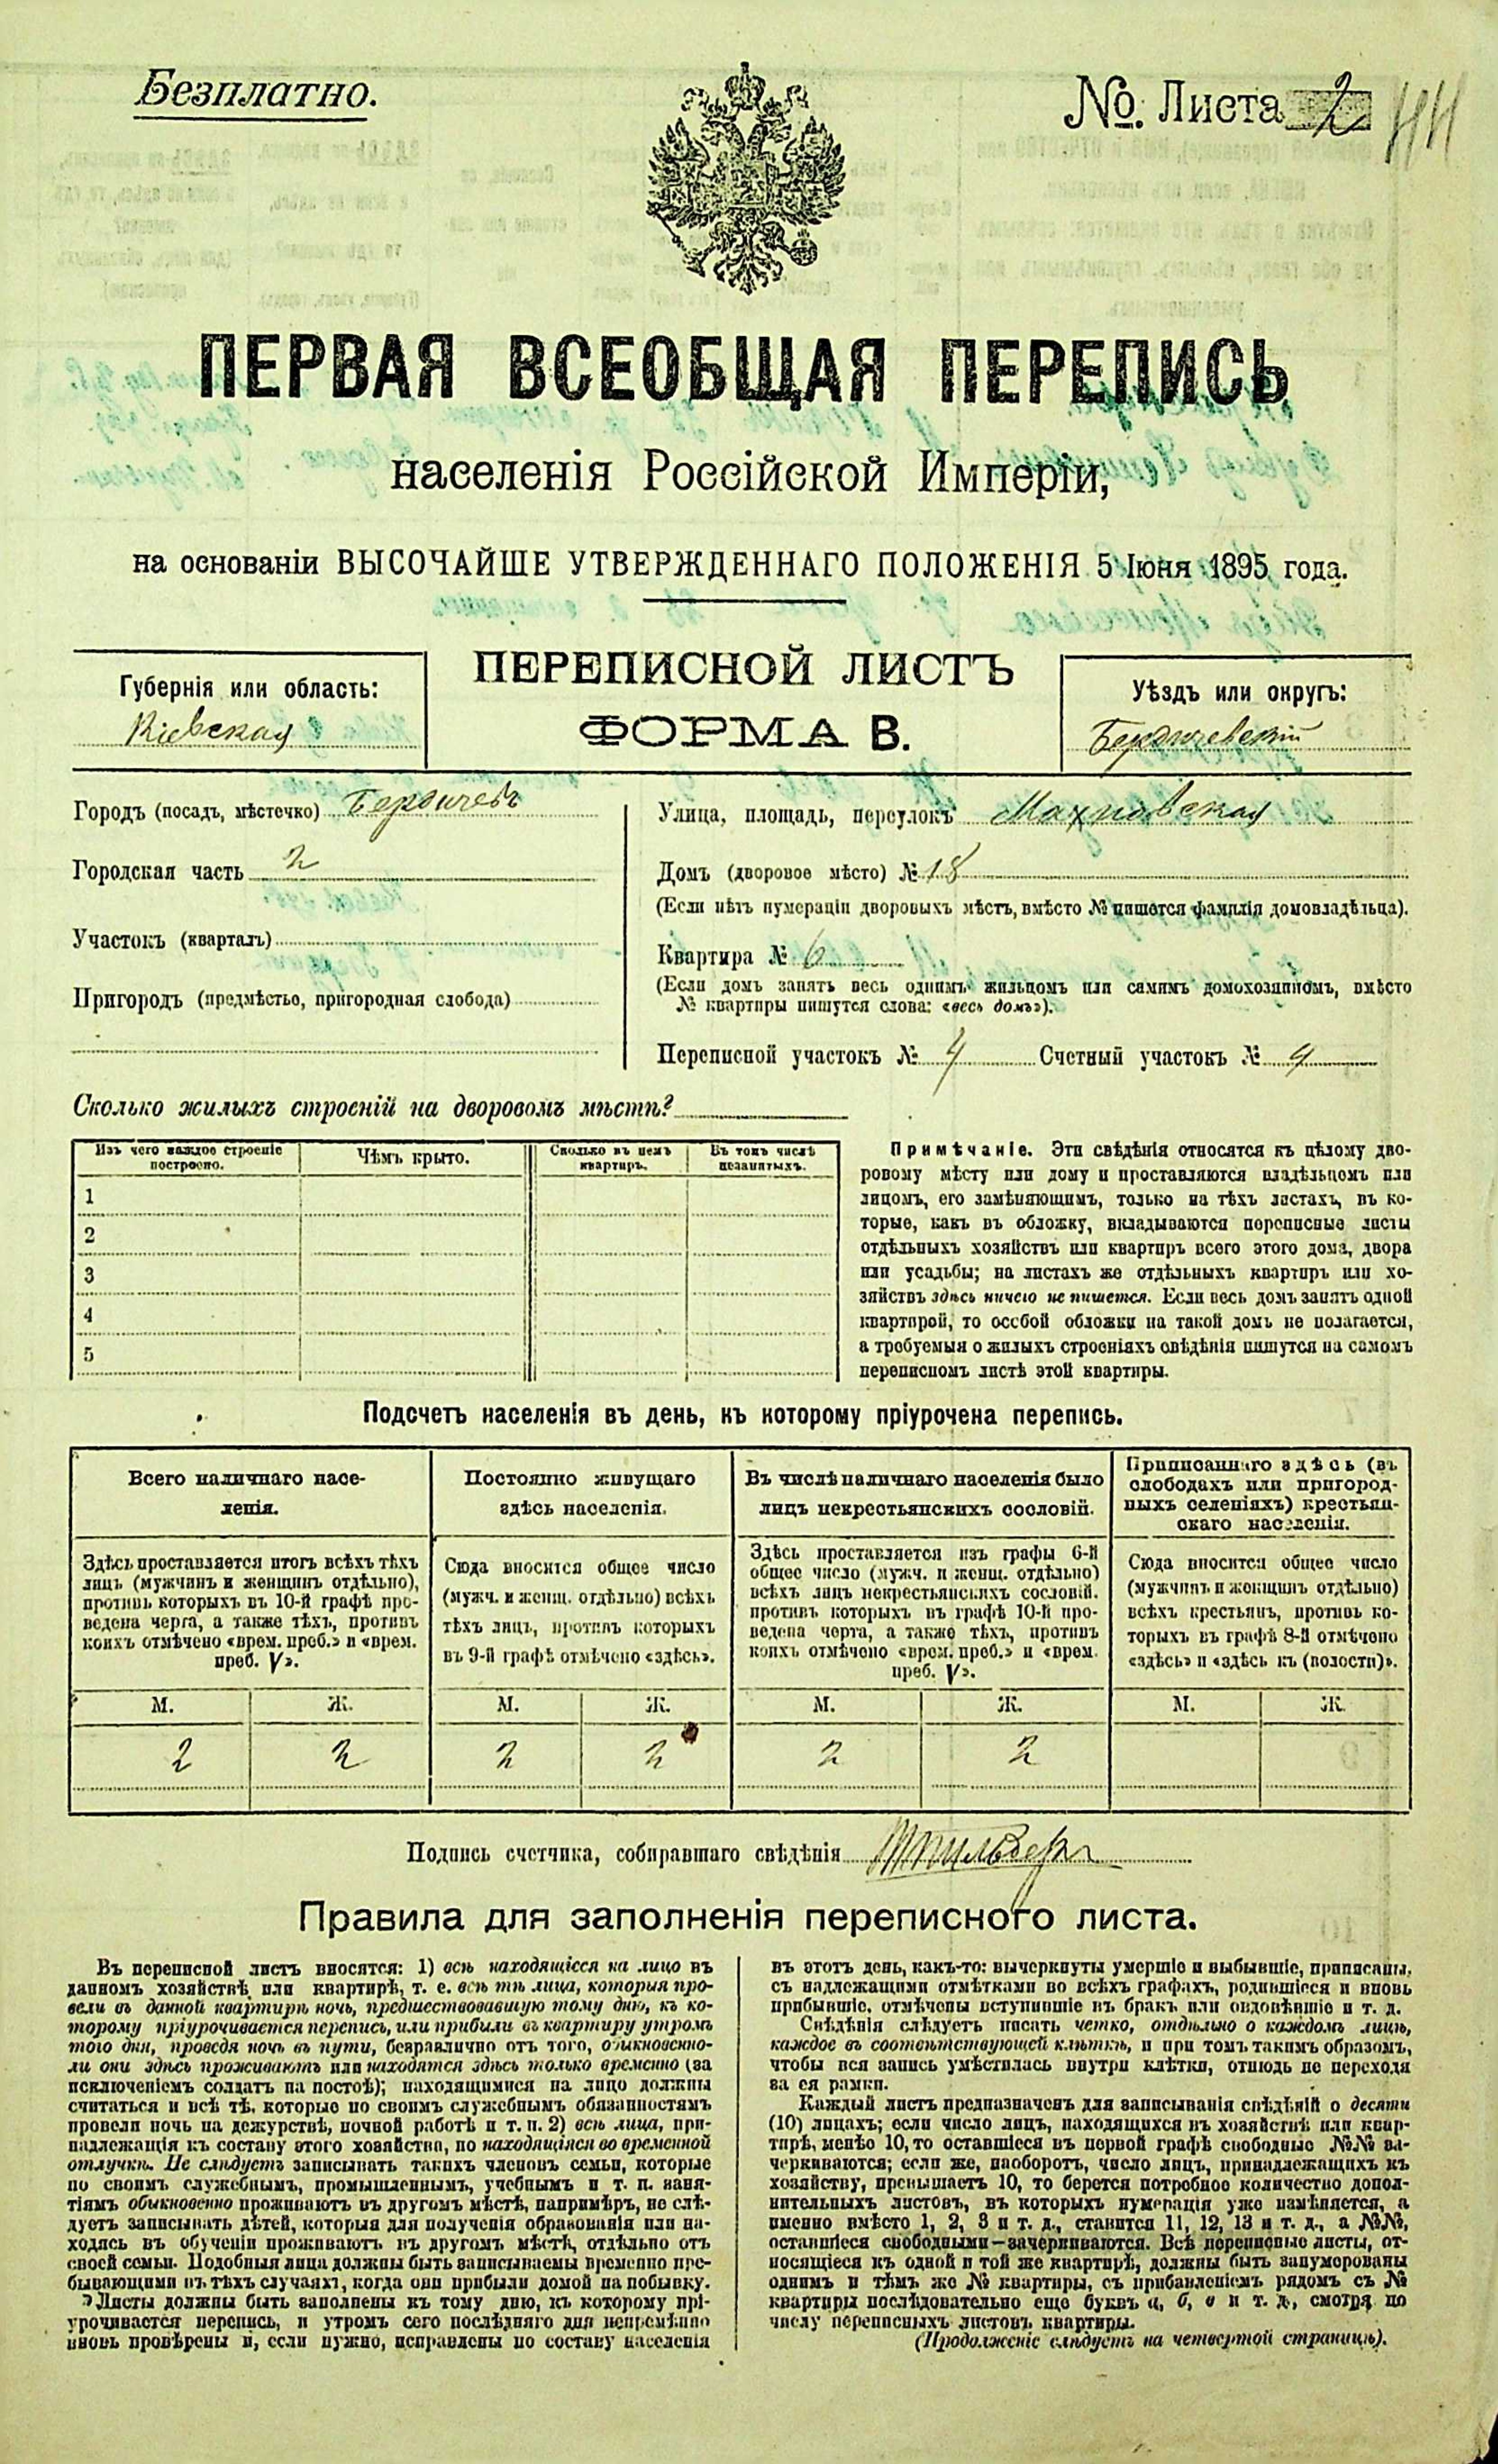 Безплатно.
№ Листа 2
ПЕРВАЯ ВСЕОБЩАЯ ПЕРЕПИСЬ
населенія Россійской Имперіи,
на основаніи ВЫСОЧАЙШЕ УТВЕРЖДЕННАГО ПОЛОЖЕНІЯ 5 Іюня 1895 года.
Губернія или область:
Кіевская
ПЕРЕПИСНОЙ ЛИСТЪ
ФОРМА В.
Уѣздъ или округъ:
Бердичевскій
Городъ (посадъ, мѣстечко) Бердичевъ
Городская часть 2
Участокъ (кварталъ)
Пригородъ (предмѣстье, пригородная слобода)
Улица, площадь, переулокъ Махновская
Домъ (дворовое мѣсто) № 18
(Если нѣтъ нумераціи дворовыхъ мѣстъ, вмѣсто № пишется фамилія домовладѣльца).
Квартира № 6
(Если домъ занятъ весь однимъ жильцомъ или самимъ домохозяиномъ, вмѣсто
№ квартиры пишутся слова: «весь домъ»).
Переписной участокъ № 4 Счетный участокъ №
Сколько жилыхъ строеній на дворовомъ мѣстѣ?
Изъ чего каждое строеніе
построено.
Чѣмъ крыто.
Сколько въ немъ
квартиръ.
Въ томъ числѣ
незанятыхъ.
1
2
3
4
5
Примѣчаніе. Эти свѣдѣнія относятся къ цѣлому дво-
ровому мѣсту или дому и проставляются владѣльцемъ или
лицомъ, его замѣняющимъ, только на тѣхъ листахъ, въ ко-
торые, какъ въ обложку, вкладываются переписные листы
отдѣльныхъ хозяйствъ или квартиръ всего этого дома, двора
или усадьбы; на листахъ же отдѣльныхъ квартиръ или хо-
зяйствъ здѣсь ничего не пишется. Если весь домъ занятъ одной
квартирой, то особой обложки на такой домъ не полагается,
а требуемыя о жилыхъ строеніяхъ свѣдѣнія пишутся на самомъ
переписномъ листѣ этой квартиры.
Подсчетъ населенія въ день, къ которому пріурочена перепись.
Всего наличнаго насе-
ленія.
Здѣсь проставляется итогъ всѣхъ тѣхъ
лицъ (мужчинъ и женщинъ отдѣльно),
противъ которыхъ въ 10-й графѣ про-
ведена черта, а также тѣхъ, противъ
коихъ отмѣчено «врем. преб.» и «врем.
преб. V».
Постоянно живущаго
здѣсь населенія.
Сюда вносится общее число
(мужч. и женщ. отдѣльно) всѣхъ
тѣхъ лицъ, противъ которыхъ
въ 9-й графѣ отмѣчено «здѣсь».
Въ числѣ наличнаго населенія было
лицъ некрестьянскихъ сословій.
Здѣсь проставляется изъ графы 6-й
общее число (мужч. и женщ. отдѣльно)
всѣхъ лицъ некрестьянскихъ сословій,
противъ которыхъ въ графѣ 10-й про-
ведена черта, а также тѣхъ, противъ
коихъ отмѣчено «врем. преб.» и «врем.
преб. V».
Приписаннаго здѣсь (въ
слободахъ или пригород-
ныхъ селеніяхъ) крестьян-
скаго населенія.
Сюда вносится общее число
(мужчинъ и женщинъ отдѣльно)
всѣхъ крестьянъ, противъ ко-
торыхъ въ графѣ 8-й отмѣчено
«здѣсь» и «здѣсь къ (волости)».
М. Ж. М. Ж. М. Ж. М. Ж.
2 2 2 2 2 2
Подпись счетчика, собиравшаго свѣдѣнія
Правила для заполненія переписного листа.
Въ переписной листъ вносятся: 1) всѣ находящіеся на лицо въ
данномъ хозяйствѣ или квартирѣ, т. е. всѣ тѣ лица, которыя про-
вели въ данной квартирѣ ночь, предшествовавшую тому дню, къ ко-
торому пріурочивается перепись, или прибыли въ квартиру утромъ
того дня, проведя ночь въ пути, безразлично отъ того, обыкновенно-
ли они здѣсь проживаютъ или находятся здѣсь только временно (за
исключеніемъ солдатъ на постоѣ); находящимися на лицо должны
считаться и всѣ тѣ, которые по своимъ служебнымъ обязанностямъ
провели ночь на дежурствѣ, ночной работѣ и т. п. 2) всѣ лица, при-
надлежащія къ составу этого хозяйства, но находящіяся во временной
отлучкѣ. Не слѣдуетъ записывать такихъ членовъ семьи, которые
по своимъ служебнымъ, промышленнымъ, учебнымъ и т. п. заня-
тіямъ обыкновенно проживаютъ въ другомъ мѣстѣ, напримѣръ, не слѣ-
дуетъ записывать дѣтей, которыя для полученія образованія или на-
ходясь въ обученіи проживаютъ въ другомъ мѣстѣ, отдѣльно отъ
своей семьи. Подобныя лица должны быть записываемы временно пре-
бывающими въ тѣхъ случаяхъ, когда они прибыли домой на побывку.
Листы должны быть заполнены къ тому дню, къ которому прі-
урочивается перепись, и утромъ сего послѣдняго дня непремѣнно
вновь провѣрены и, если нужно, исправлены по составу населенія
въ этотъ день, какъ-то: вычеркнуты умершіе и выбывшіе, приписаны,
съ надлежащими отмѣтками во всѣхъ графахъ, родившіеся и вновь
прибывшіе, отмѣчены вступившіе въ бракъ или овдовѣвшіе и т. д.
Свѣдѣнія слѣдуетъ писать четко, отдѣльно о каждомъ лицѣ,
каждое въ соотвѣтствующей клѣткѣ, и при томъ такимъ образомъ,
чтобы вся запись умѣстилась внутри клѣтки, отнюдь не переходя
за ея рамки.
Каждый листъ предназначенъ для записыванія свѣдѣній о десяти
(10) лицахъ; если число лицъ, находящихся въ хозяйствѣ или квар-
тирѣ, менѣе 10, то оставшіеся въ первой графѣ свободные №№ за-
черкиваются; если же, наоборотъ, число лицъ, принадлежащихъ къ
хозяйству, превышаетъ 10, то берется потребное количество допол-
нительныхъ листовъ, въ которыхъ нумерація уже измѣняется, а
именно вмѣсто 1, 2, 3 и т. д., ставится 11, 12, 13 и т. д., а №№,
оставшіеся свободными—зачеркиваются. Всѣ переписные листы, от-
носящіеся къ одной и той же квартирѣ, должны быть занумерованы
однимъ и тѣмъ же № квартиры, съ прибавленіемъ рядомъ съ №
квартиры послѣдовательно еще буквъ а, б, в и т. д., смотря по
числу переписныхъ листовъ квартиры.
(Продолженіе слѣдуетъ на четвертой страницѣ).